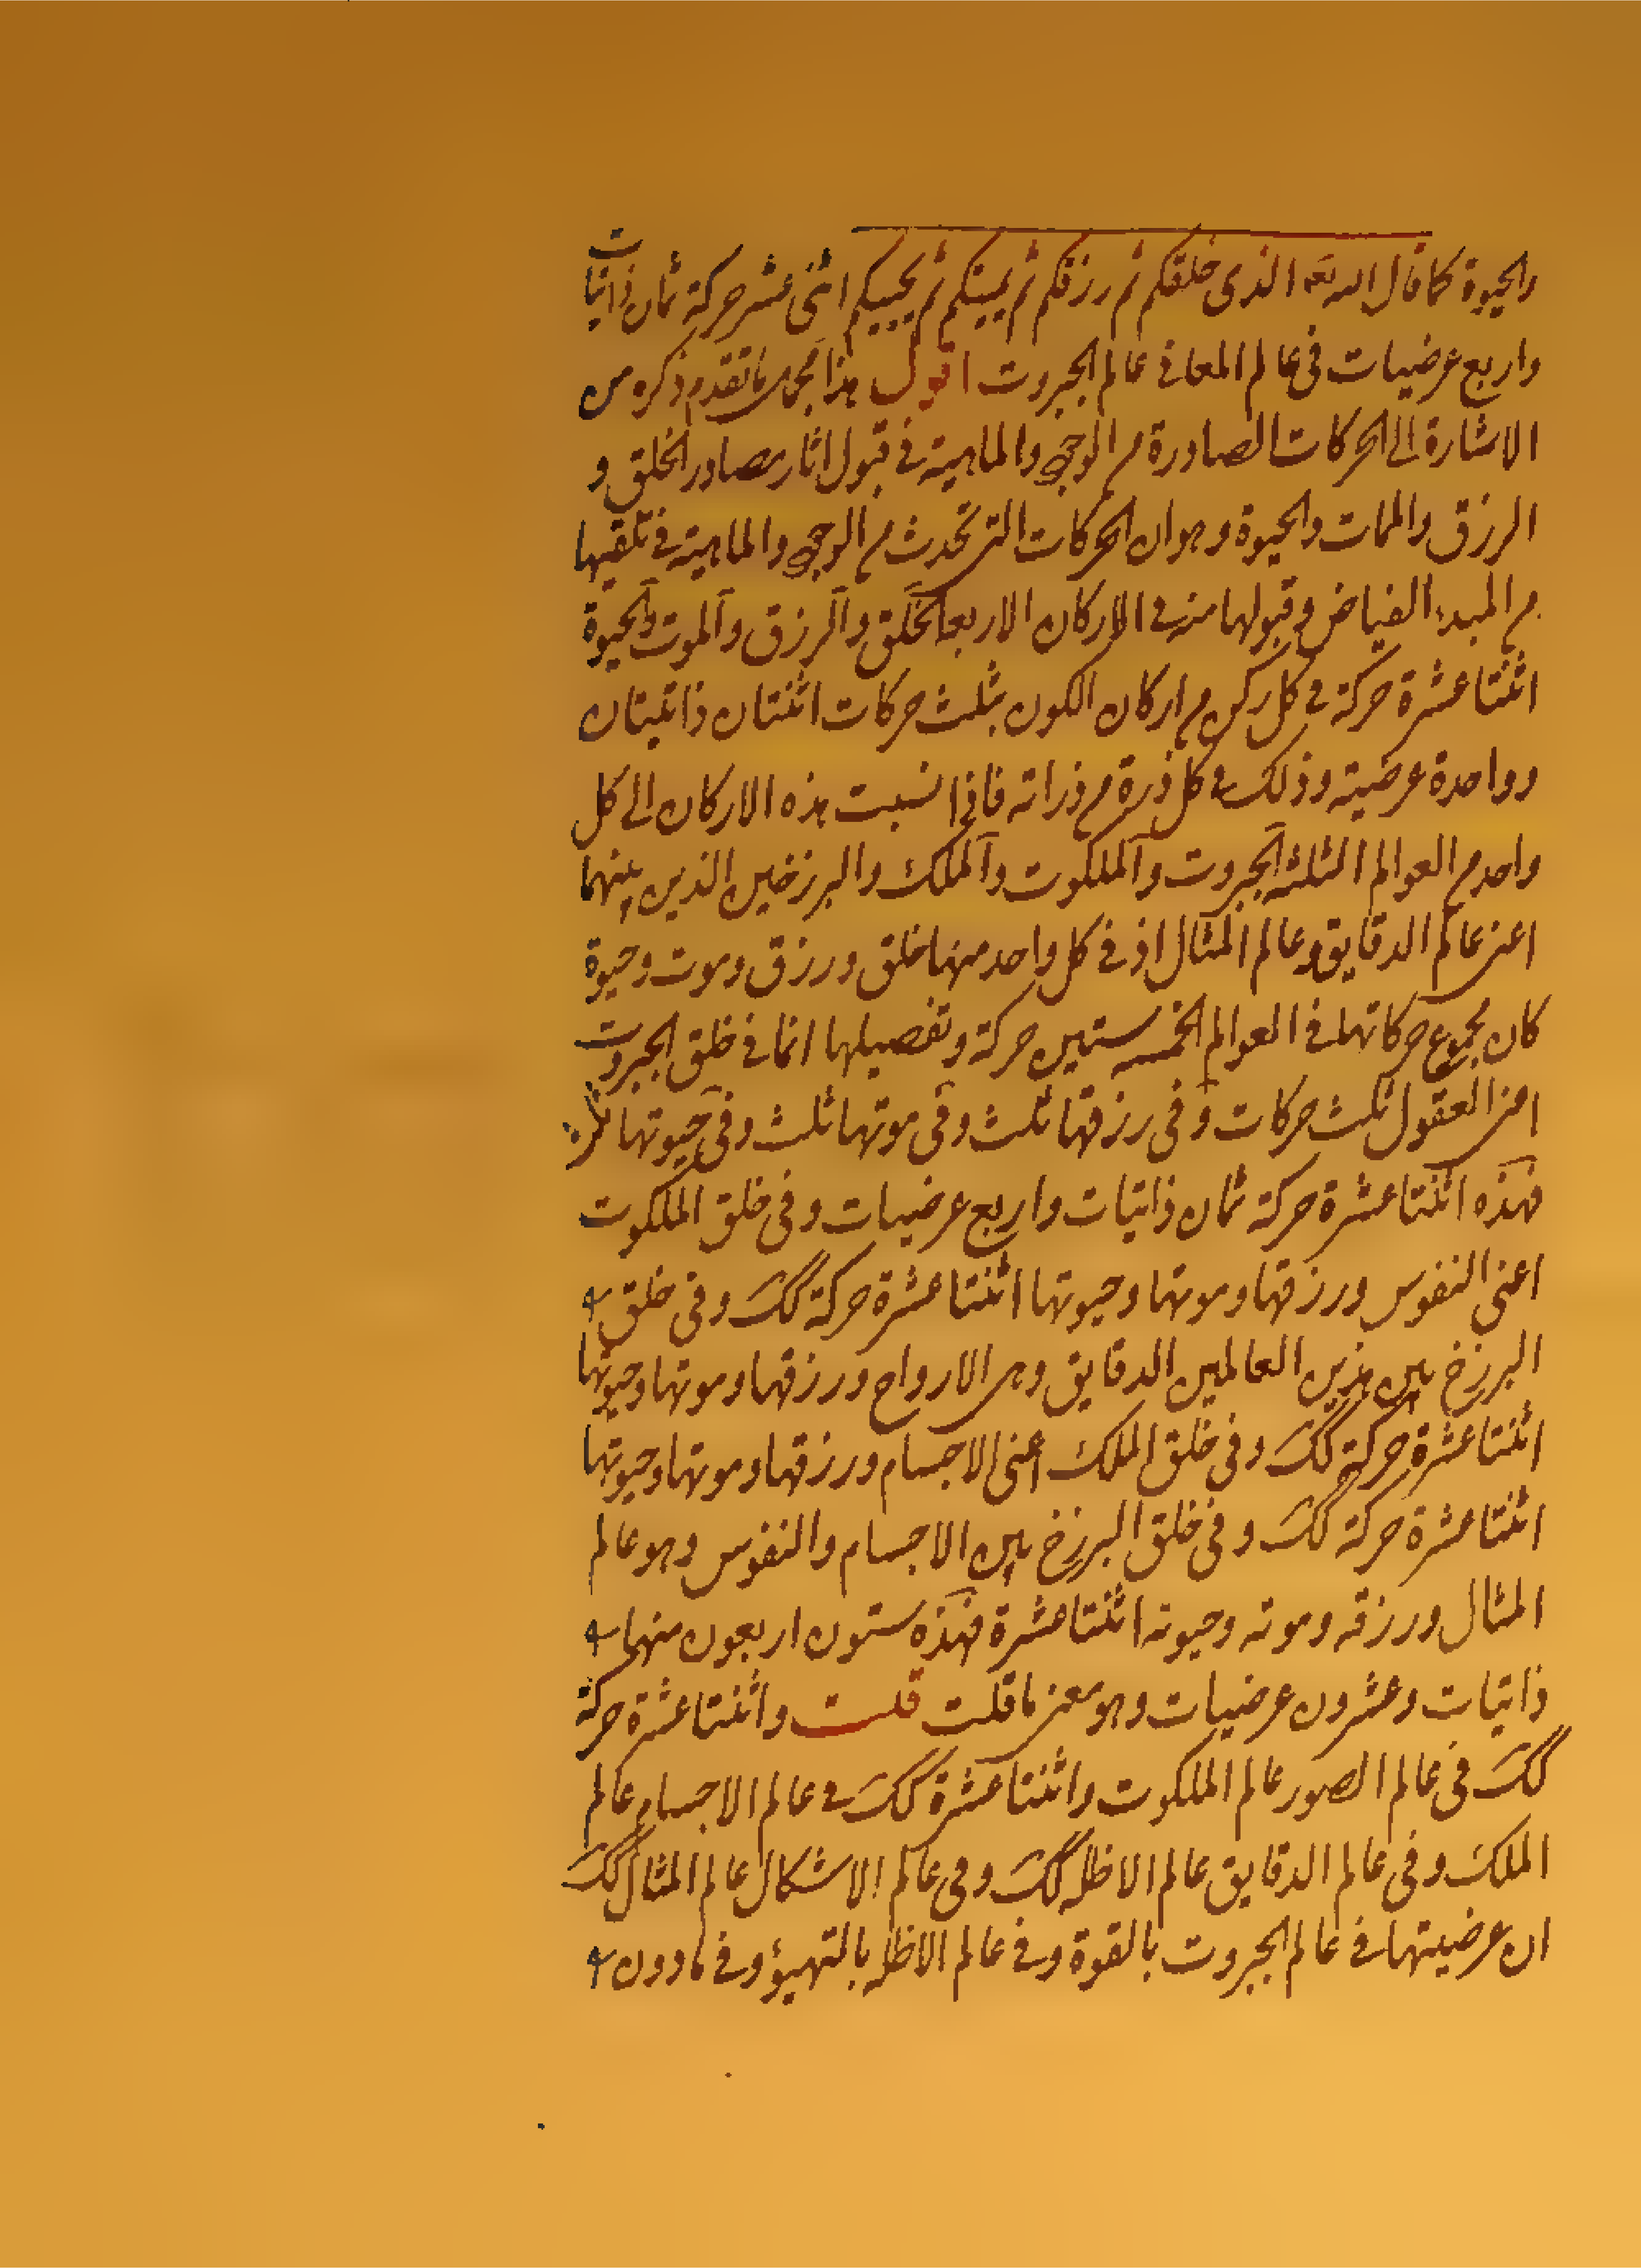 والحيوة كما قال الله تعه الذى خلقكم ثم رزقكم ثم يميتكم ثم يحييكم اثنى عشر حركة ثمان ذاتيات
واربع عرضيات فى عالم المعانى عالم الجبروت اقول هذا مجمل ما تقدم ذكره من
الاشارة الى الحركات الصادرة من الوجود والماهية فى قبول اثار مصادر الخلق و
الرزق والممات والحيوة وهو ان الحركات التى تحدث من الوجود والماهية فى تلقيها
من المبدء الفياض وقبولها منه فى الاركان الاربعة الخلق والرزق والموت والحيوة
اثنتا عشرة حركة فى كل ركن من اركان الكون ثلث حركات اثنتان ذاتيتان
وواحدة عرضية وذلك فى كل ذرة من ذراته فاذا نسبت هذه الاركان الى كل
واحد من العوالم الثلثة الجبروت والملكوت والملك والبرزخين الذين بينهما
اعنى عالم الدقايق وعالم المثال اذ فى كل واحد منها خلق ورزق وموت وحيوة
كان مجموع حركاتها فى العوالم الخمسه ستين حركة وتفصيلها انما فى خلق الجبروت
اعنى العقول ثلث حركات وفى رزقها ثلث وفى موتها ثلث وفى حيوتها ثلث
فهذه اثنتا عشرة حركة ثمان ذاتيات واربع عرضيات وفى خلق الملكوت
اعنى النفوس ورزقها وموتها وحيوتها اثنتا عشرة حركة كك وفى خلق
البرزخ بين هذين العالمين الدقايق وهى الارواح ورزقها وموتها وحيوتها
اثنتا عشرة حركة كك وفى خلق الملك اعنى الاجسام ورزقها وموتها وحيوتها
اثنتا عشرة حركة كك وفى خلق البرزخ بين الاجسام والنفوس وهو عالم
المثال ورزقه وموته وحيوته اثنتا عشرة فهذه ستون اربعون منها
ذاتيات وعشرون عرضيات وهو معنى ما قلت قلت واثنتا عشرة حركة
كك فى عالم الصور عالم الملكوت واثنتا عشرة كك فى عالم الاجسام عالم
الملك وفى عالم الدقايق عالم الاظلة كك وفى عالم الاشكال عالم المثال كك
ان عرضيتها فى عالم الجبروت بالقوة وفى عالم الاظلة بالتهيؤ وفى ما دون